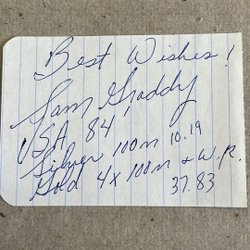 Best Wishes!
Sam Graddy
USA 84
Silver 100m 10.19
Gold 4x100m + W.R.
37.83